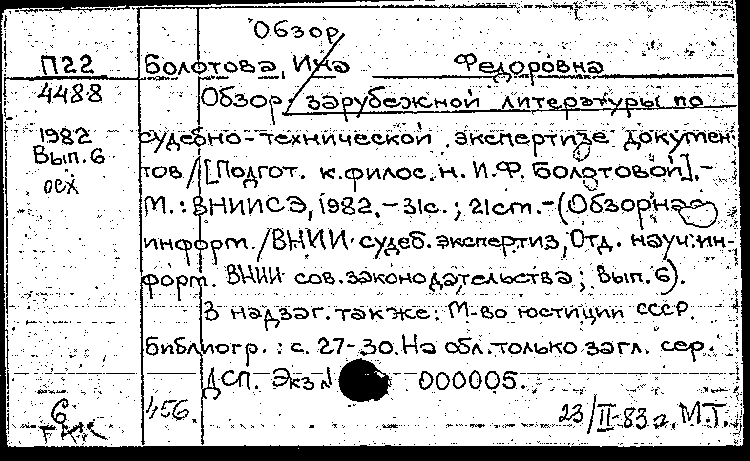 Обзор
П22 Болотова, Ина Федоровна
4488 Обзор зарубежной литературы по
1982 судебно-технической экспертизе докумен-
Вып.6 тов/[Подгот. к.филос.н. И.Ф. Болотовой].-
осх М.: ВНИИСЭ, 1982.-31с.; 21см.-(Обзорная
информ./ВНИИ судеб. экспертиз, Отд. науч. ин-
форм. ВНИИ сов. законодательства; Вып.6).
В надзаг. также: М-во юстиции СССР.
Библиогр.: с. 27-30. На обл. только загл. сер.
ДСП. Экз N 000005.
6 456. 23/II-83 г. М.Т.